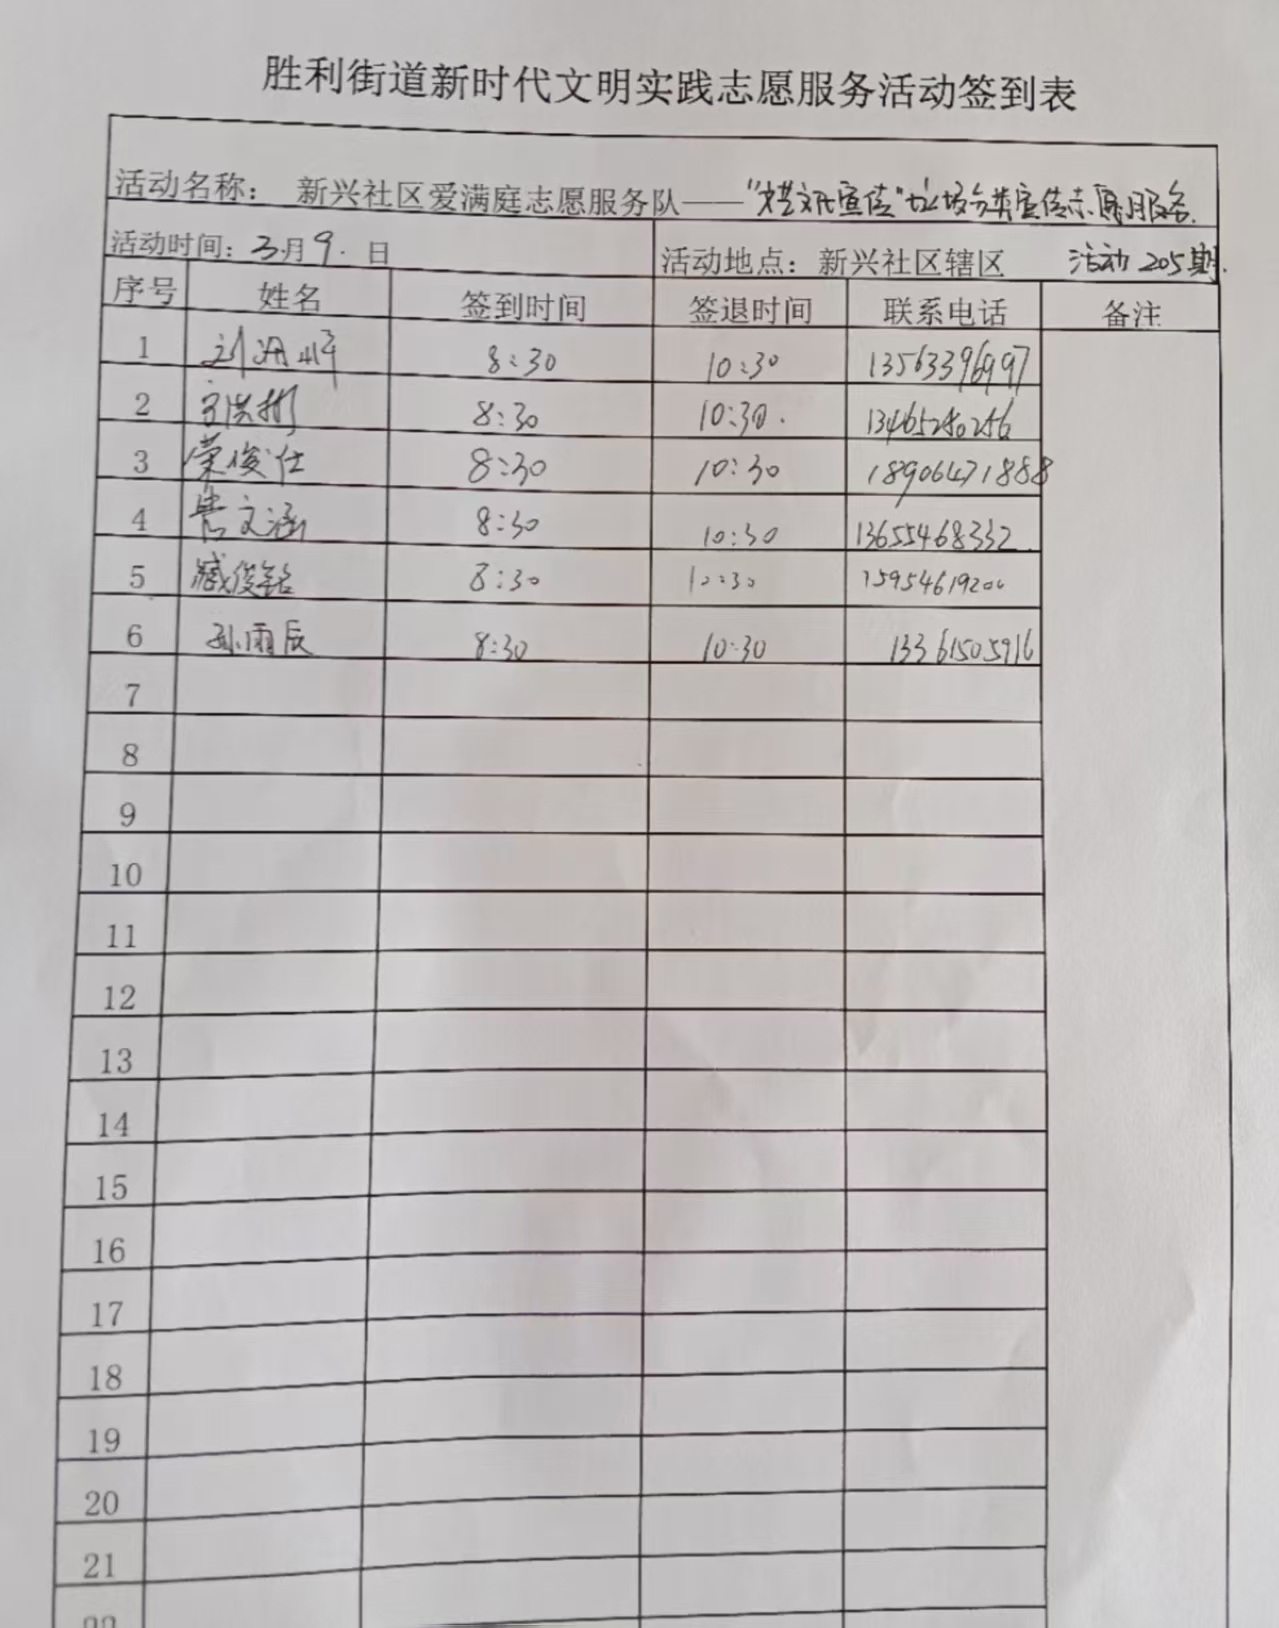 胜利街道新时代文明实践志愿服务活动签到表
活动名称： 新兴社区爱满庭志愿服务队——“文艺文化宣传”垃圾分类宣传志愿服务
活动时间：3月9.日 活动地点：新兴社区辖区 活动205期.
序号 姓名 签到时间 签退时间 联系电话 备注
1 刘 8:30 10:30 13563396997
2 8:30 10:30. 13465280256
3 荣俊仕 8:30 10:30 18906471888
4 文涵 8:30 10:30 13655468332.
5 臧俊铭 8:30 10:30 15954619200
6 孙雨辰 8:30 10:30 13361505916
7
8
9
10
11
12
13
14
15
16
17
18
19
20
21
22